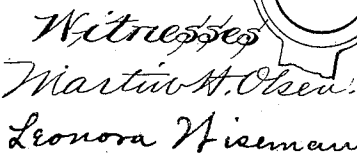 Witnesses
Martin H. Olsen.
Leonora Wiseman